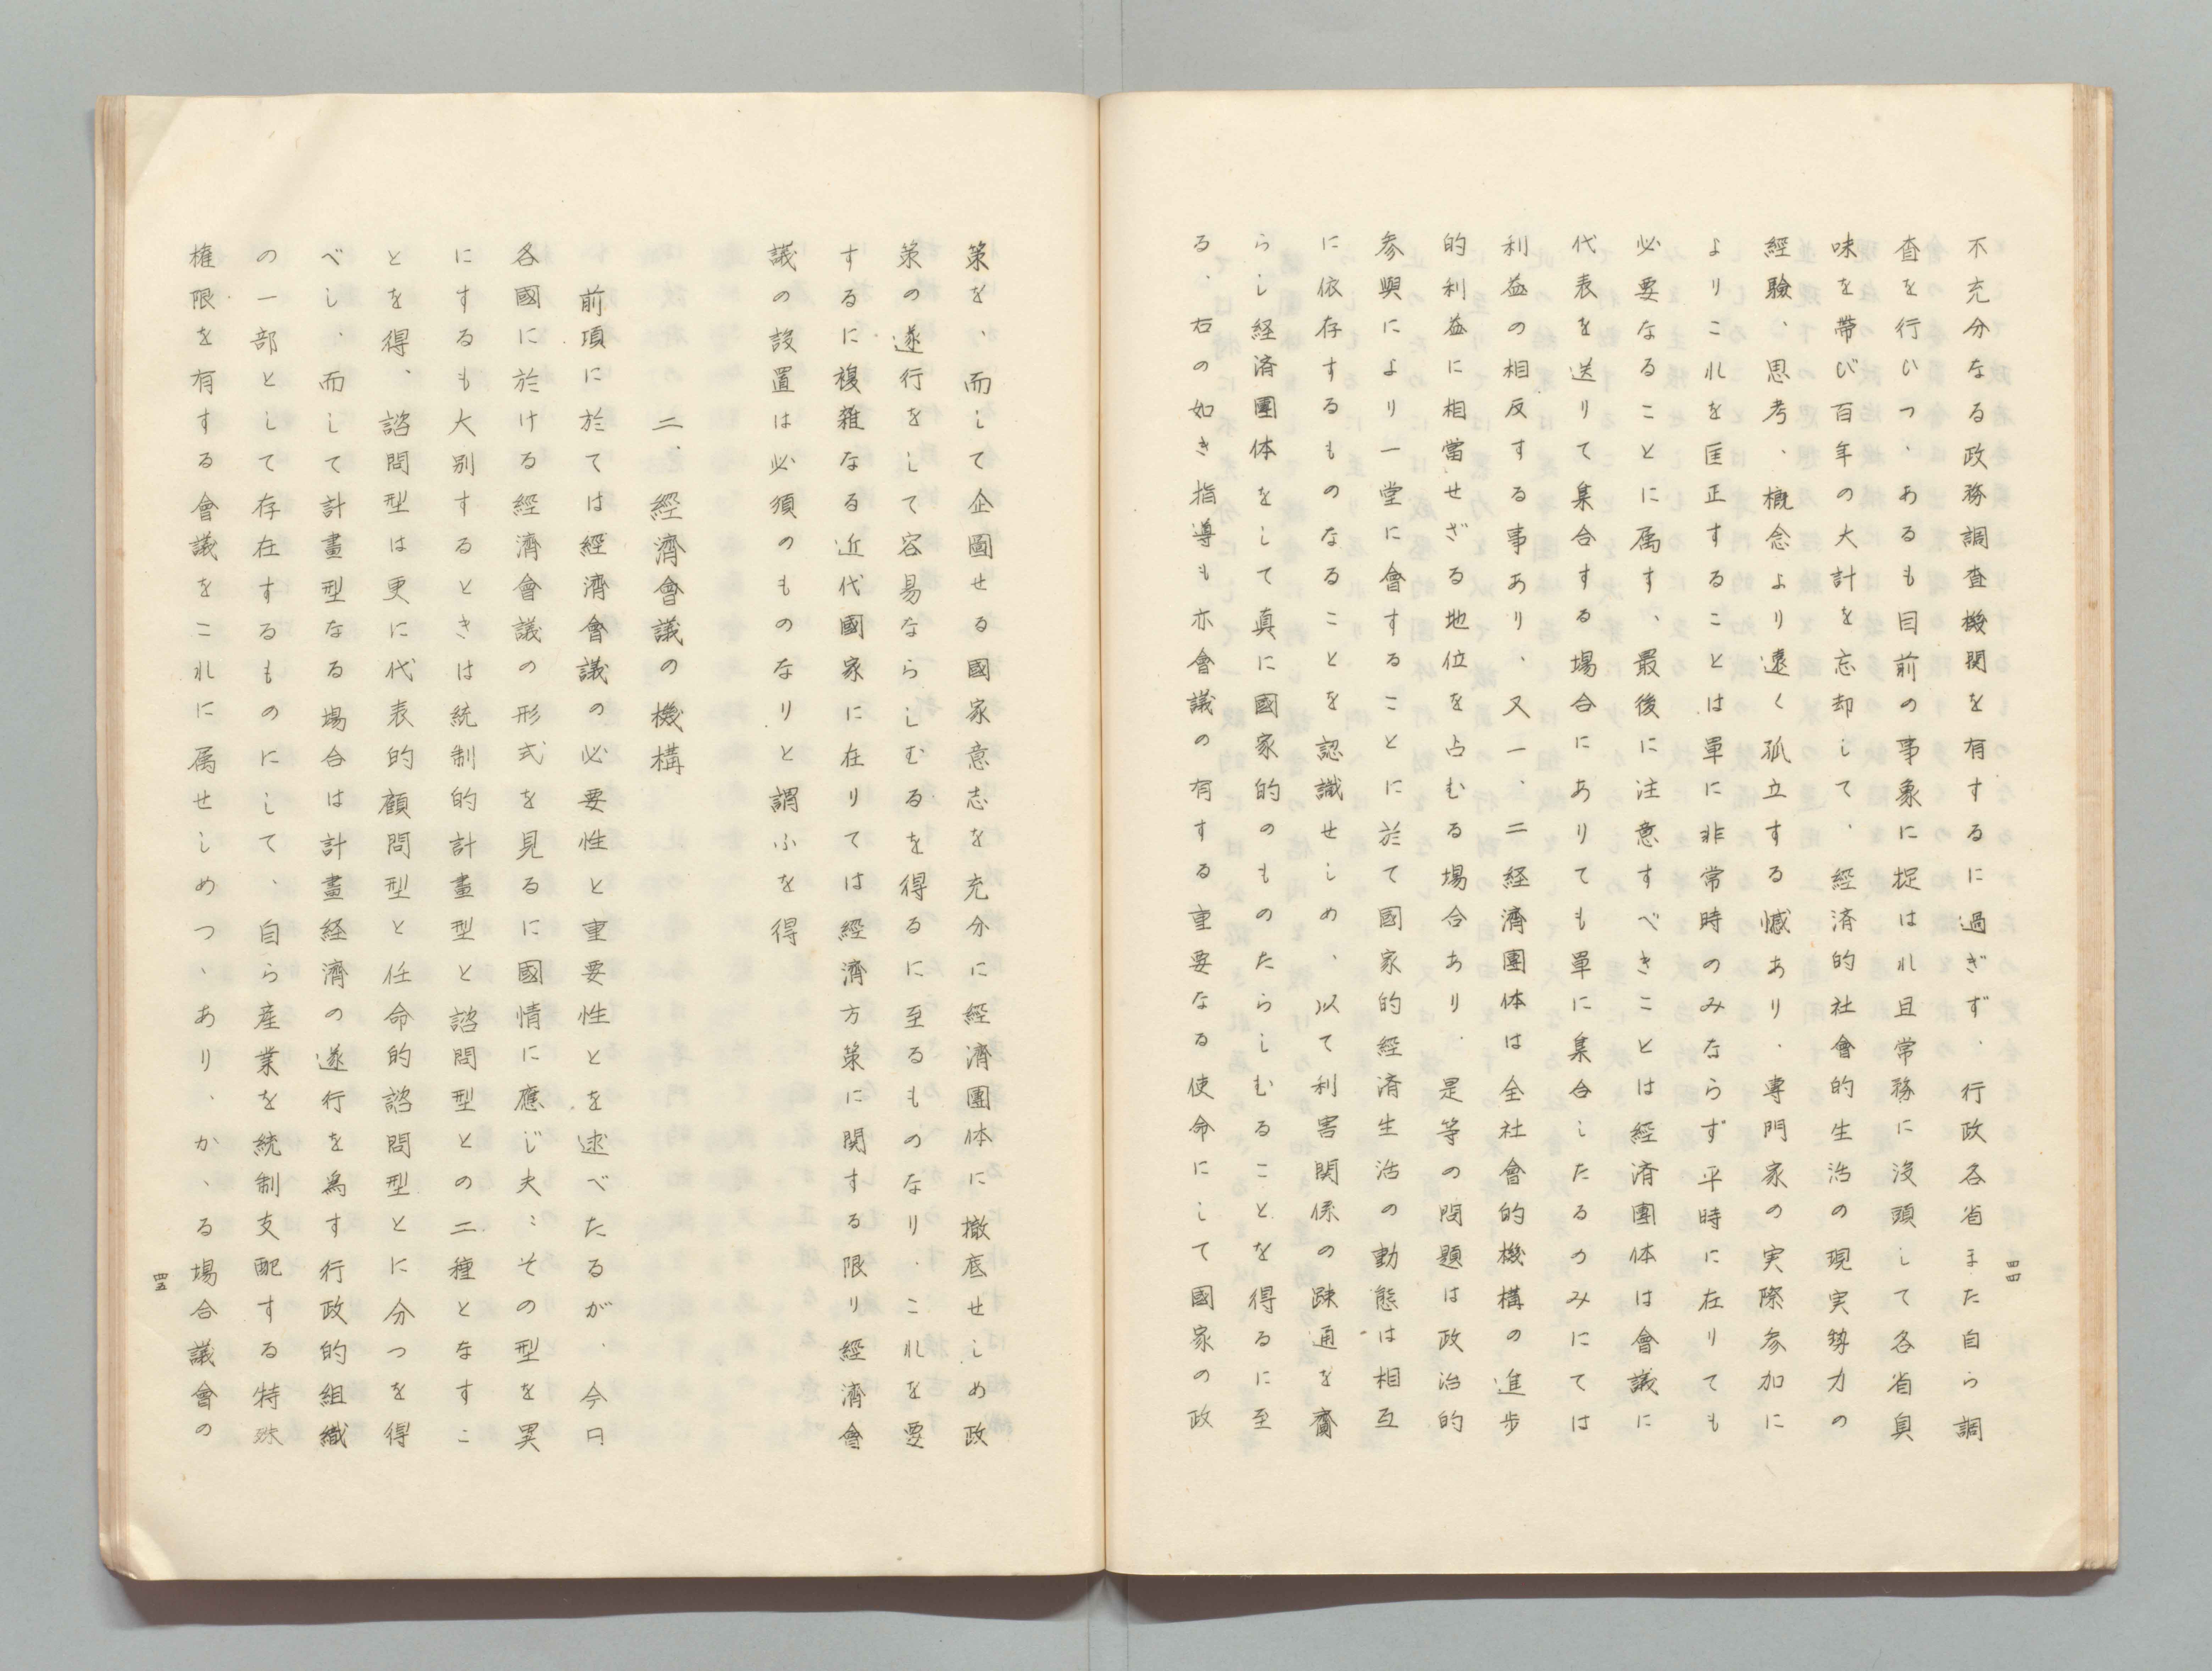 不充分なる政務調査機関を有するに過ぎず、行政各省また自ら調
査を行いつゝあるも目前の事象に捉はれ且常務に没頭して各省員
味を帯び百年の大計を忘却して、経済的社會的生活の現実勢力の
經驗、思考、概念より遠く孤立する憾あり、専門家の実際参加に
よりこれを匡正することは單に非常時のみならず平時に在りても
必要なることに属す、最後に注意すべきことは経済團体は會議に
代表を送りて集合する場合にありても單に集合したるのみにては
利益の相反する事あり、又一、二経済團体は全社會的機構の進歩
的利益に相當せざる地位を占むる場合あり、是等の問題は政治的
参與により一堂に會することに於て國家的經済生活の動態は相互
に依存するものなることを認識せしめ、以て利害関係の疎通を齎
らし経済團体をして真に國家的のものたらしむることを得るに至
る、右の如き指導も亦會議の有する重要なる使命にして國家の政
四四
策を、而して企圖せる國家意志を充分に經濟團体に撤底せしめ政
策の遂行をして容易ならしむるを得るに至るものなり、これを要
するに複雜なる近代國家に在りては經濟方策に関する限り經濟會
議の設置は必須のものなりと謂ふを得
二、經濟會議の機構
前項に於ては經濟會議の必要性と重要性とを述べたるが、今日
各國に於ける經濟會議の形式を見るに國情に應じ夫〻その型を異
にするも大別するときは統制的計畫型と諮問型との二種となすこ
とを得、諮問型は更に代表的顧問型と任命的諮問型とに分つを得
べし、而して計畫型なる場合は計畫経濟の遂行を為す行政的組織
の一部として存在するものにして、自ら産業を統制支配する特殊
権限を有する會議をこれに属せしめつゝあり、かゝる場合議會の
四五